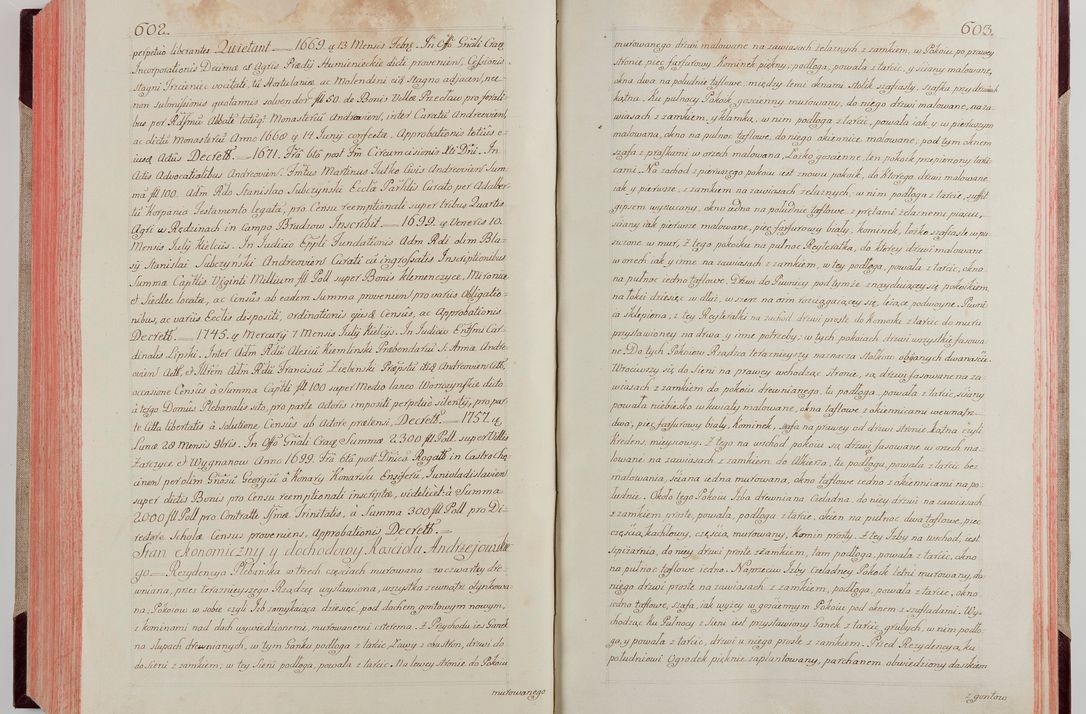 602.
perpetuo liberantes Quietant — 1669. y 13 Mensis Febr. In Offo Gnãli Crac
Incorporationis Decimæ et Agris Prædij Humienieckie dicti provenien. Cessionis
Stagni Trzciniec vocitati, tũ Hortulaniæ, ac Molendini eiq Stagno adjacen, nec
non submissionis quotannis solvendor fll 50. de Bonis Villæ Precław pro
bus per Rdsmu Abbatē totiuq Monasteriũ Andreovien, inter Curatũ Andreovien,
ac dictũ Monasteriũ Anno 1668 y 14 Junij confectæ, Approbationis totius e-
iusq Actus Decrett. — 1671. Frã 6tã post Fm Circumcisionis Xti Dni. In
Actis Advocatialibus Andreovien. Fmtus Martinus Julko Civis Andreovien Sum-
mã fll 100. Adm Rdo Stanislao Subczynski Eccla Parhlis Curato per Adalber
tũ Korpania Testamento legatã, pro Censu reemptionali super tribus Quartis
Agri w Redzinach in Campo Brudzow Inscribit. — 1699. y Veneris 10.
Mensis Julij Kielcijs. In Judicio Eppli Fundationis Adm Rdi olim Bla-
sij Stanislai Subczynski Andreovien Curati cũ ingrossatis Inscriptionibus
Summa Capitlis Viginti Millium fll Poll super Bonis Klemenczyce, Mironice
et Siedlec locatæ, ac Censũs ab eadem Summa provenien pro varijs Obligatio-
nibus, ac varijs Ecclis dispositi, ordinationis ejusq Censũs, ac Approbationis
Decrett. — 1745. y Mercurij 7 Mensis Julij Kielcijs. In Judicio Emsmi Car-
dinalis Lipski. Inter Adm Rdũ Alexiũ Kiemlinski Præbendariũ S. Annæ Andre-
ovien Actt. et Illrem Adm Rdũ Franciscũ Ziebenski Præpstũ Andreovien
occasione Censũs à Summa Capitli fll 100 super Medio laneo Worozynskie dicto
à tergo Domus Plebanalis sito, pro parte Actoris impositi perpetui silentij, pro par
te Citta libertatis à Solutione Censũs ab Actore prætensi, Decrett. — 1757. y
Luna 28 Mensis 9bris. In Offo Gnãli Crac Summæ 2300 fll Poll super Villis
Zarczyce et Wygnanow Anno 1699. Frã 6tã post Dnicã Rogatt in Castro Chę
cinen per olim Gnosũ Georgiũ à Konary Konarski Ensiferũ Junivladislavien
super dictis Bonis pro Censu reemptionali inscriptæ, videlicet à Summa
2000 fll Poll pro Contratte Ssmæ Trinitatis, à Summa 300 fll Poll pro Di-
rectore Scholæ Census proveniens, Approbationis Decrett —
Stan ekonomiczny y dochodowy Kosciola Andrzejowskie
go — Rezydencya Plebanska w trzech częsciach murowana w czwartey dre-
wniana, przez teraznieyszego Rządzcę wystawiona, wszystka zewnątrz otynkowa
na. Pokoiow w sobie czyli Izb zamykaiąca dziesięc, pod dachem gontowym nowym,
z kominami nad dach wywiedzionemi, murowanemi czterema. Z Przychodu iest Ganek
na słupach drewnianych, w tym Ganku podłoga z tarcic, Ławy z oustron, drzwi do
do Sieni z zamkiem, w tey Sieni podłoga, powała z tarcic. Na lewey stronie do Pokoiu
murowanego
603.
murowanego drzwi malowane na zawiasach żelaznych z zamkiem, w Pokoiu, po prawey
stronie piec farfurowy, Kominek piękny, podłoga, powała z tarcic, y sciany malowane,
okna dwa na południe taflowe, między temi oknami stolik szafiasty, szafka przy drzwiach
kątna. Ku pułnocy Pokoik goscienny murowany, do niego drzwi malowane, na za-
wiasach z zamkiem, y klamką, w nim podłoga z tarcic, powała iak y w pierwszym
malowana, okno na pułnoc taflowe, do niego okiennice malowane, pod tym oknem
szafa z prasskami w orzech malowana, Łożko goscienne, ten pokoik przepierzony tarci-
cami. Na zachod z pierwszego pokoiu iest znowu pokoik, do ktorego drzwi malowane
iak y pierwsze, z zamkiem na zawiasach żelaznych, w nim podłoga z tarcic, suffit
gipsem wyrzucany, okno iedno na południe taflowe, z prętami żelaznemi pięciu,
sciany iak pierwsze malowane, piec farfurowy biały, kominek, łożko szafiaste wpu-
szczone w mur. Z tego pokoiku na pułnoc Resztatka, do ktorey drzwi malowane
w orzech iak y inne na zawiasach z zamkiem, w tey podłoga, powała z tarcic, okno
na pułnoc iedno taflowe. Drzwi do Piwnicy pod tymże znayduiącey się pokoikiem,
na łokci dziesięc w dłuż, w szerz na osm sciągaiącey się, leżące podwoyne. Piwni-
ca sklepiona, z tey Resztatki na zachod drzwi proste do komorki z tarcic do muru
przystawioney na drwa y inne potrzeby: w tych pokoiach drzwi wszystkie fasowa-
ne. Do tych Pokoiow Rządca teraznieyszy naznacza Stołkow obijanych dwanascie.
Wrociwszy się do Sieni na prawey wchodząc stronie, są drzwi fasowane na za-
wiasach z zamkiem do pokoiu drewnianego, tu podłoga, powała z tarcic, sciany
powała niebiesko w kwiaty malowane, okna taflowe z okiennicami wewnątrz
dwa, piec farfurowy biały, kominek, szafa na prawey od drzwi stronie kątna czyli
kredens mieyscowy. Z tego na wschod pokoiu są drzwi fasowane w orzech ma-
lowane na zawiasach z zamkiem do Alkierza, tu podłoga, powała z tarcic bez
malowania, sciana iedna murowana, okno taflowe iedno z okiennicami na po-
łudnie. Około tego Pokoiu Izba drewniana Czeladna, do niey drzwi na zawiasach
z zamkiem proste, powała, podłoga z tarcic, okien na pułnoc dwa taflowe, piec
częscią kachlowy, częscią murowany, Komin prosty. Z tey Izby na wschod, iest
spiżarnia, do niey drzwi proste z zamkiem, tam podłoga, powała z tarcic, okno
na pułnoc taflowe iedno. Naprzeciw Izby Czeladney Pokoik letni murowany, do
niego drzwi proste na zawiasach z zamkiem, podłoga, powała z tarcic, okno
iedno taflowe, szafa, iak wyzey w gosciennym Pokoiu pod oknem z szufladami. Wy-
chodząc ku Pułnocy z Sieni iest przystawiony Ganek z tarcic, grubych, w nim podło-
ga, y powała z tarcic, drzwi u niego proste z zamkiem. Przed Rezydencyą ku
południowi Ogrodek pięknie zaplantowany, parchanem obwiedziony daszkiem
z gontow